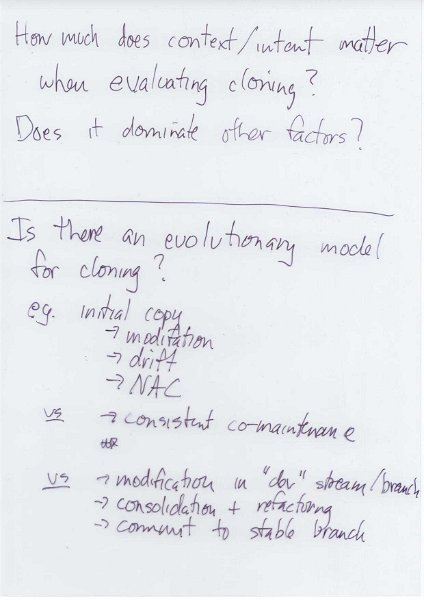 How much does context/intent matter
when evaluating cloning?
Does it dominate other factors?
Is there an evolutionary model
for cloning?
eg. initial copy
→ modification
→ drift
→ NAC
vs → consistent co-maintenance
vs → modification in "dev" stream/branch
→ consolidation + refactoring
→ commit to stable branch